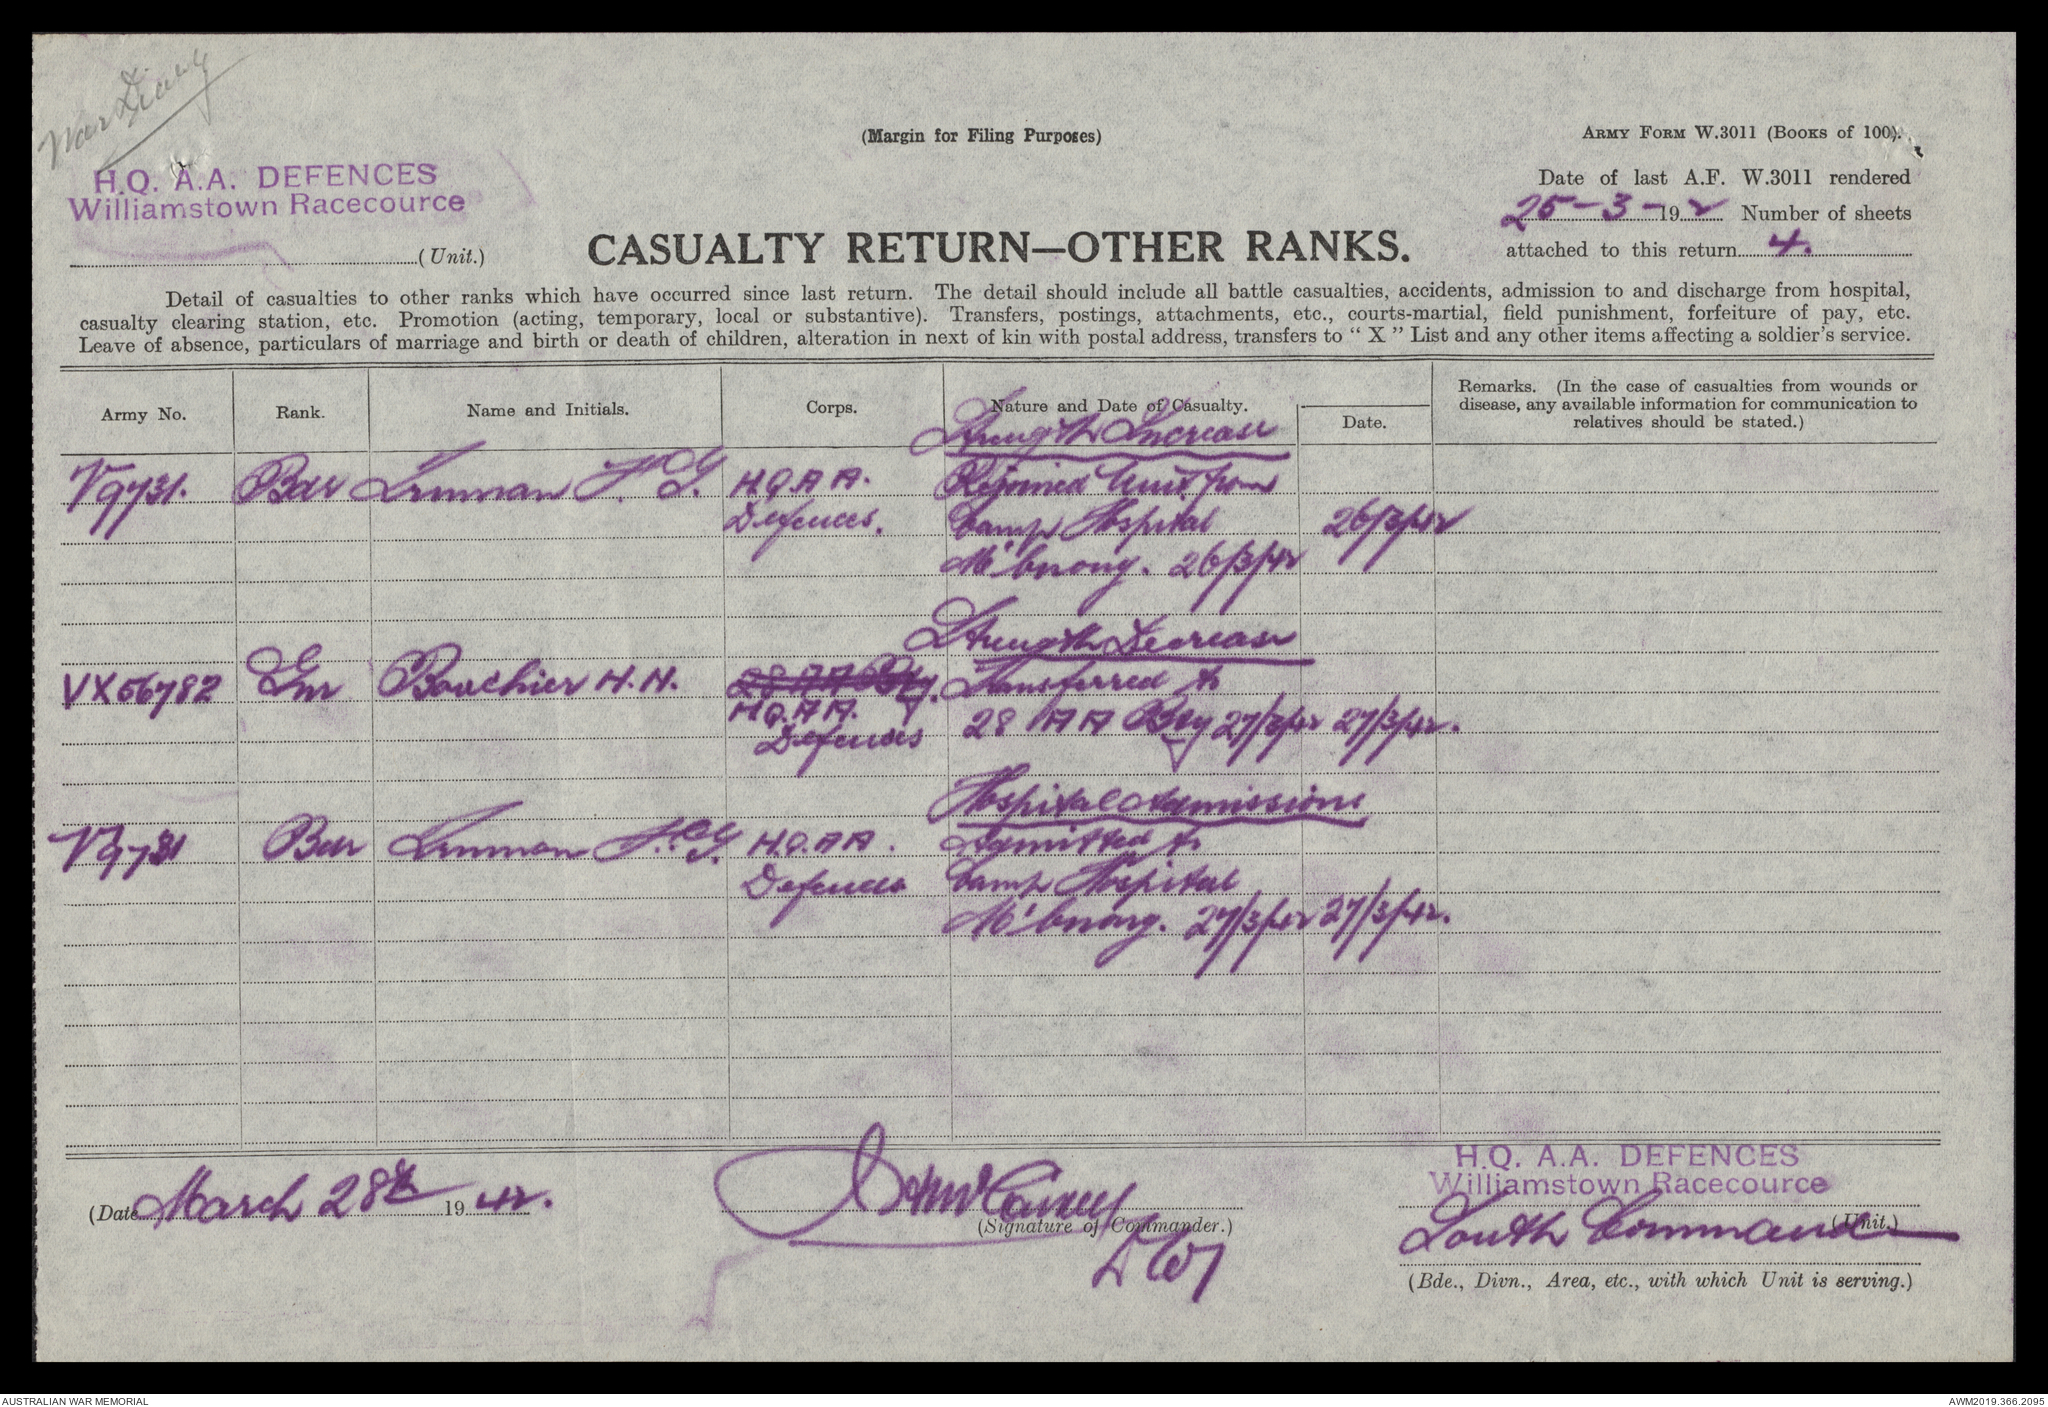 War Diary
(Margin for Filing Purposes)
ARMY FORM W.3011 (BOOKS OF 100).
H.Q. A.A. DEFENCES
Williamstown Racecource
(Unit.)
CASUALTY RETURN—OTHER RANKS.
Date of last A.F. W.3011 rendered
25-3-192 Number of sheets
attached to this return 4.
Detail of casualties to other ranks which have occurred since last return. The detail should include all battle casualties, accidents, admission to and discharge from hospital,
casualty clearing station, etc. Promotion (acting, temporary, local or substantive). Transfers, postings, attachments, etc., courts-martial, field punishment, forfeiture of pay, etc.
Leave of absence, particulars of marriage and birth or death of children, alteration in next of kin with postal address, transfers to "X" List and any other items affecting a soldier's service.
Army No. Rank. Name and Initials. Corps. Nature and Date of Casualty. Date. Remarks. (In the case of casualties from wounds or
disease, any available information for communication to
relatives should be stated.)
Strength Increase
V9731. Bdr H.Q.A A. Rejoined Unit from
Defences. Camp Hospital 26/3/42
M'bnong. 26/3/42
Strength Decrease
VX56782 Gnr Bouchier H.H. 28 A A Bty. Transferred to
H.Q.A A. 28 A A Bty 27/3/42 27/3/42.
Defences
Hospital Admissions
V9731 Bdr H.Q.A A. Admitted to
Defences Camp Hospital
M'bnong. 27/3/42 27/3/42.
(Date March 28th 1942.
(Signature of Commander.)
H.Q. A.A. DEFENCES
Williamstown Racecource
(Unit.)
South Command
(Bde., Divn., Area, etc., with which Unit is serving.)
AUSTRALIAN WAR MEMORIAL
AWM2019.366.2095